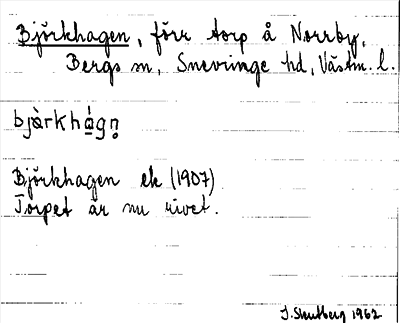 Björkhagen, förr torp å Norrby,
Bergs sn, Snevringe hd, Västm. l.
bjǜrkhá̱gṇ
Björkhagen ek (1907)
Torpet är nu rivet.
1962